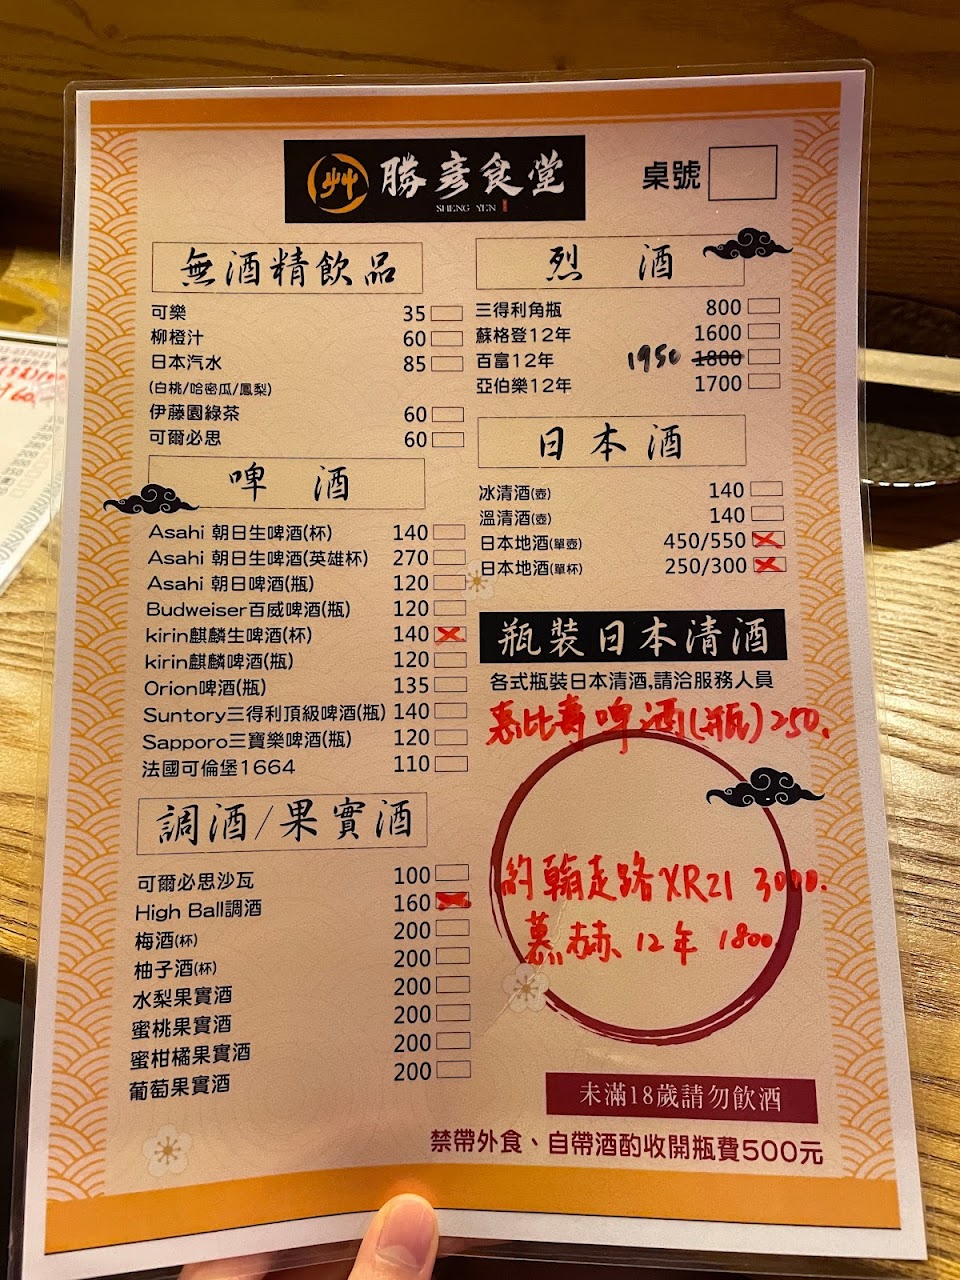 勝彥食堂
SHENG YEN
桌號
無酒精飲品
可樂 35
柳橙汁 60
日本汽水 85
(白桃/哈密瓜/鳳梨)
伊藤園綠茶 60
可爾必思 60
啤 酒
Asahi 朝日生啤酒(杯) 140
Asahi 朝日生啤酒(英雄杯) 270
Asahi 朝日啤酒(瓶) 120
Budweiser百威啤酒(瓶) 120
kirin麒麟生啤酒(杯) 140
kirin麒麟啤酒(瓶) 120
Orion啤酒(瓶) 135
Suntory三得利頂級啤酒(瓶) 140
Sapporo三寶樂啤酒(瓶) 120
法國可倫堡1664 110
調酒/果實酒
可爾必思沙瓦 100
High Ball調酒 160
梅酒(杯) 200
柚子酒(杯) 200
水梨果實酒 200
蜜桃果實酒 200
蜜柑橘果實酒 200
葡萄果實酒 200
烈 酒
三得利角瓶 800
蘇格登12年 1600
百富12年 1950 1800
亞伯樂12年 1700
日本酒
冰清酒(壺) 140
溫清酒(壺) 140
日本地酒(單壺) 450/550
日本地酒(單杯) 250/300
瓶裝日本清酒
各式瓶裝日本清酒,請洽服務人員
惠比壽啤酒(瓶)250.
約翰走路XR21 3000.
慕赫12年 1800.
未滿18歲請勿飲酒
禁帶外食、自帶酒酌收開瓶費500元